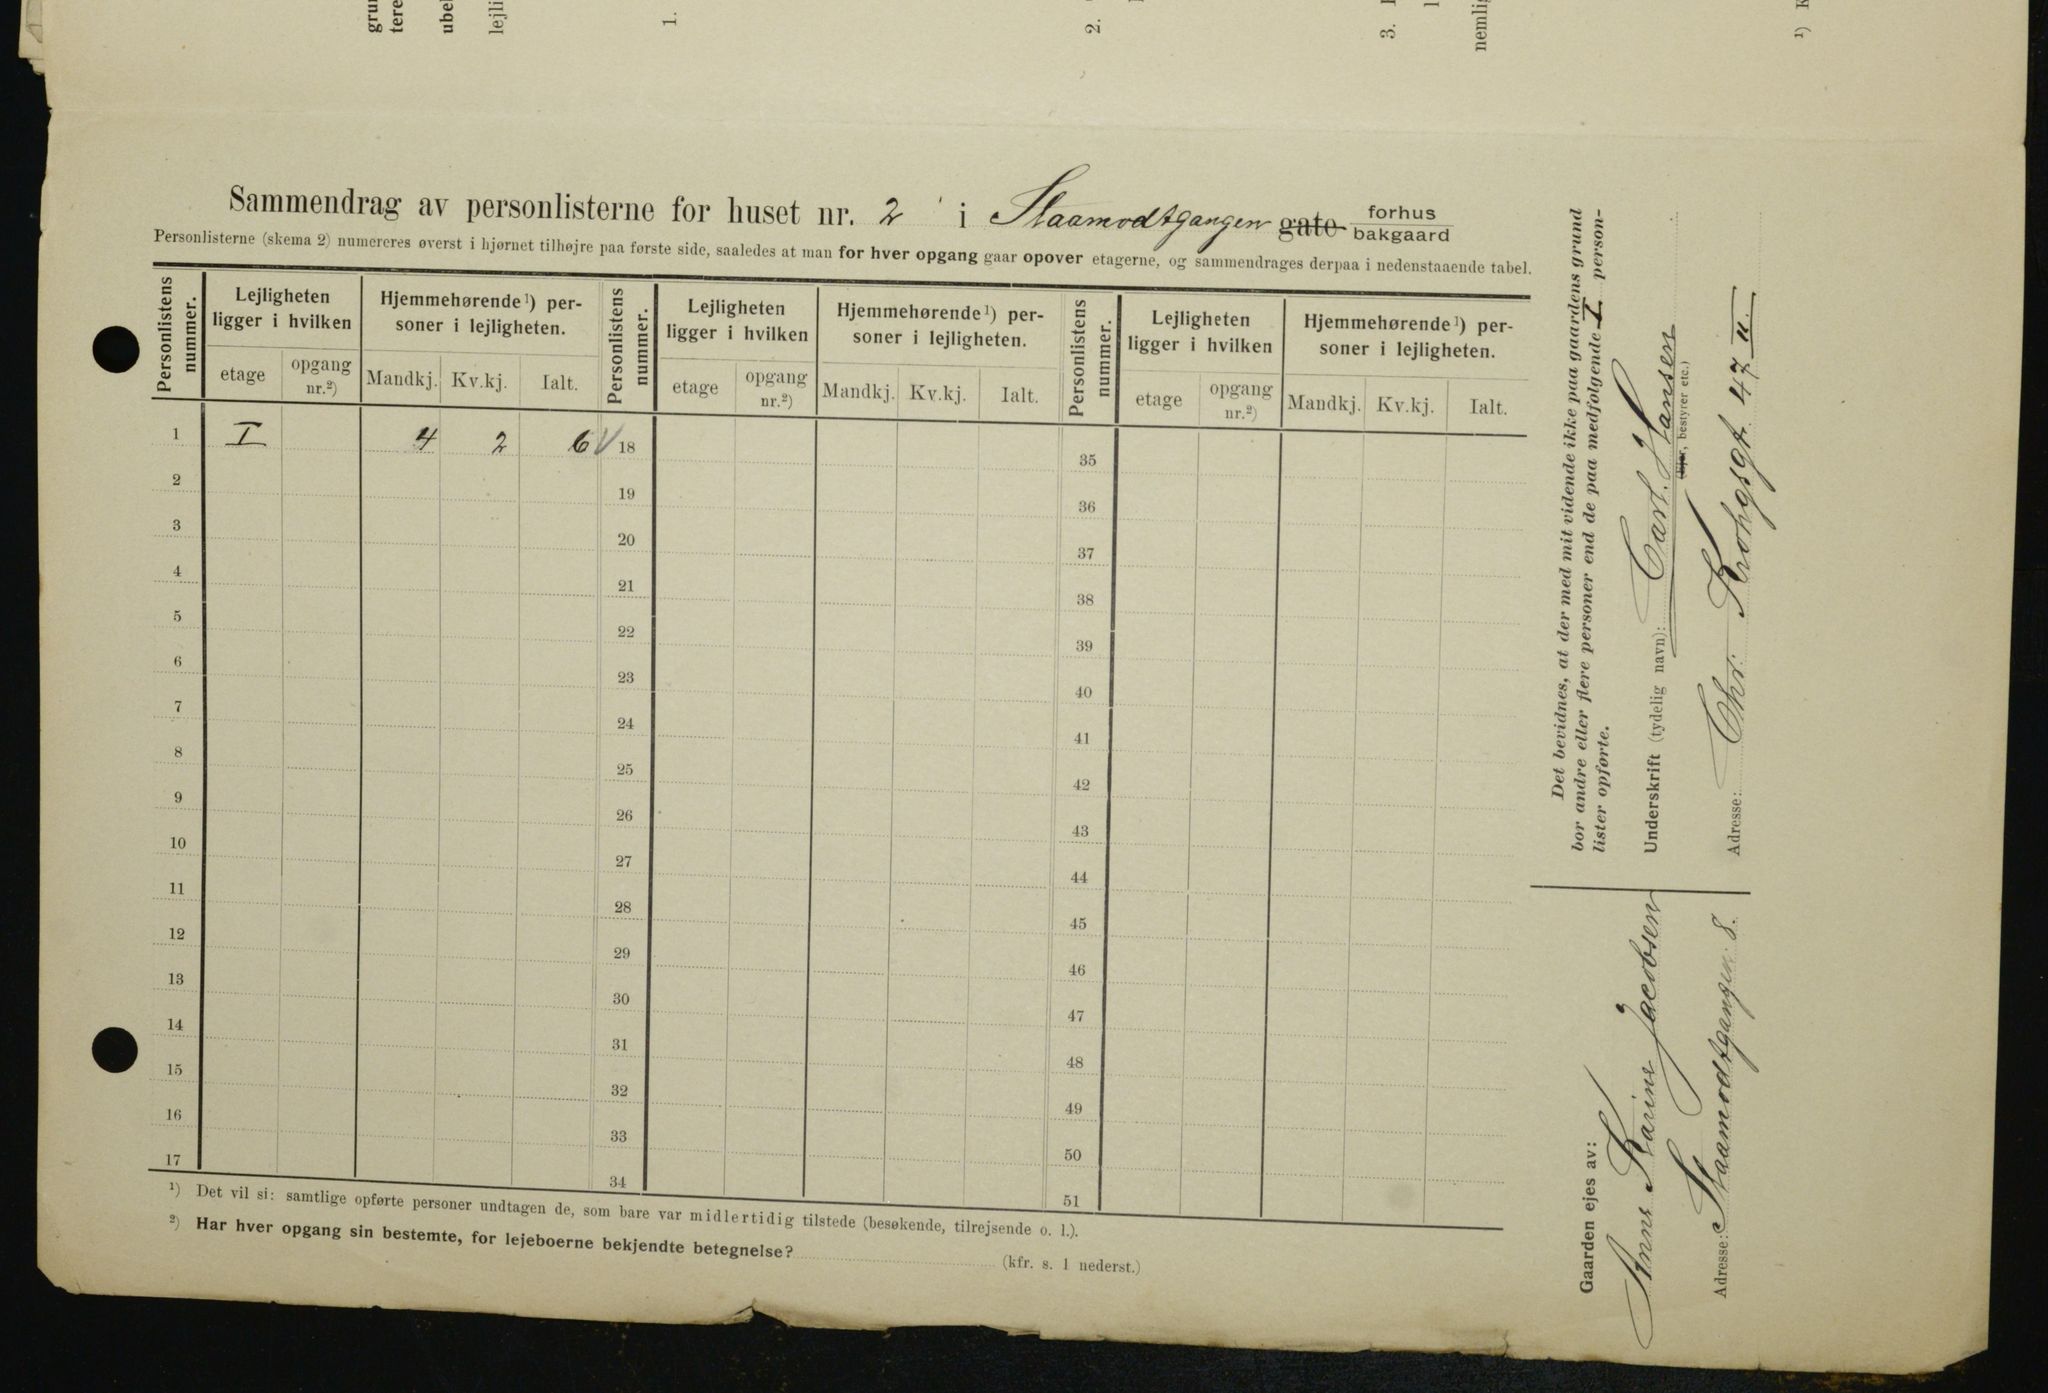 grun
tere
ubel
lejli
1.
2.
3.
nemlig
¹)
Sammendrag av personlisterne for huset nr. 2 i Slaamodtgangen gate forhus
bakgaard
Personlisterne (skema 2) numereres øverst i hjørnet tilhøjre paa første side, saaledes at man for hver opgang gaar opover etagerne, og sammendrages derpaa i nedenstaaende tabel.
Personlistens nummer. Lejligheten ligger i hvilken Hjemmehørende¹) personer i lejligheten. Personlistens nummer. Lejligheten ligger i hvilken Hjemmehørende¹) personer i lejligheten. Personlistens nummer. Lejligheten ligger i hvilken Hjemmehørende¹) personer i lejligheten.
etage opgang nr.²) Mandkj. Kv.kj. Ialt. etage opgang nr.²) Mandkj. Kv.kj. Ialt. etage opgang nr.²) Mandkj. Kv.kj. Ialt.
1 I 4 2 6 √ 18 35
2 19 36
3 20 37
4 21 38
5 22 39
6 23 40
7 24 41
8 25 42
9 26 43
10 27 44
11 28 45
12 29 46
13 30 47
14 31 48
15 32 49
16 33 50
17 34 51
¹) Det vil si: samtlige opførte personer undtagen de, som bare var midlertidig tilstede (besøkende, tilrejsende o. l.).
²) Har hver opgang sin bestemte, for lejeboerne bekjendte betegnelse? (kfr. s. 1 nederst.)
Det bevidnes, at der med mit vidende ikke paa gaardens grund
bor andre eller flere personer end de paa medfølgende I person-
lister opførte.
Underskrift (tydelig navn): Carl. Hansen
(Ejer, bestyrer etc.)
Adresse: Chr. Krohgsgt 47 II.
Gaarden ejes av:
Anne Karine Jacobsen
Adresse: Slaamodtgangen 8.